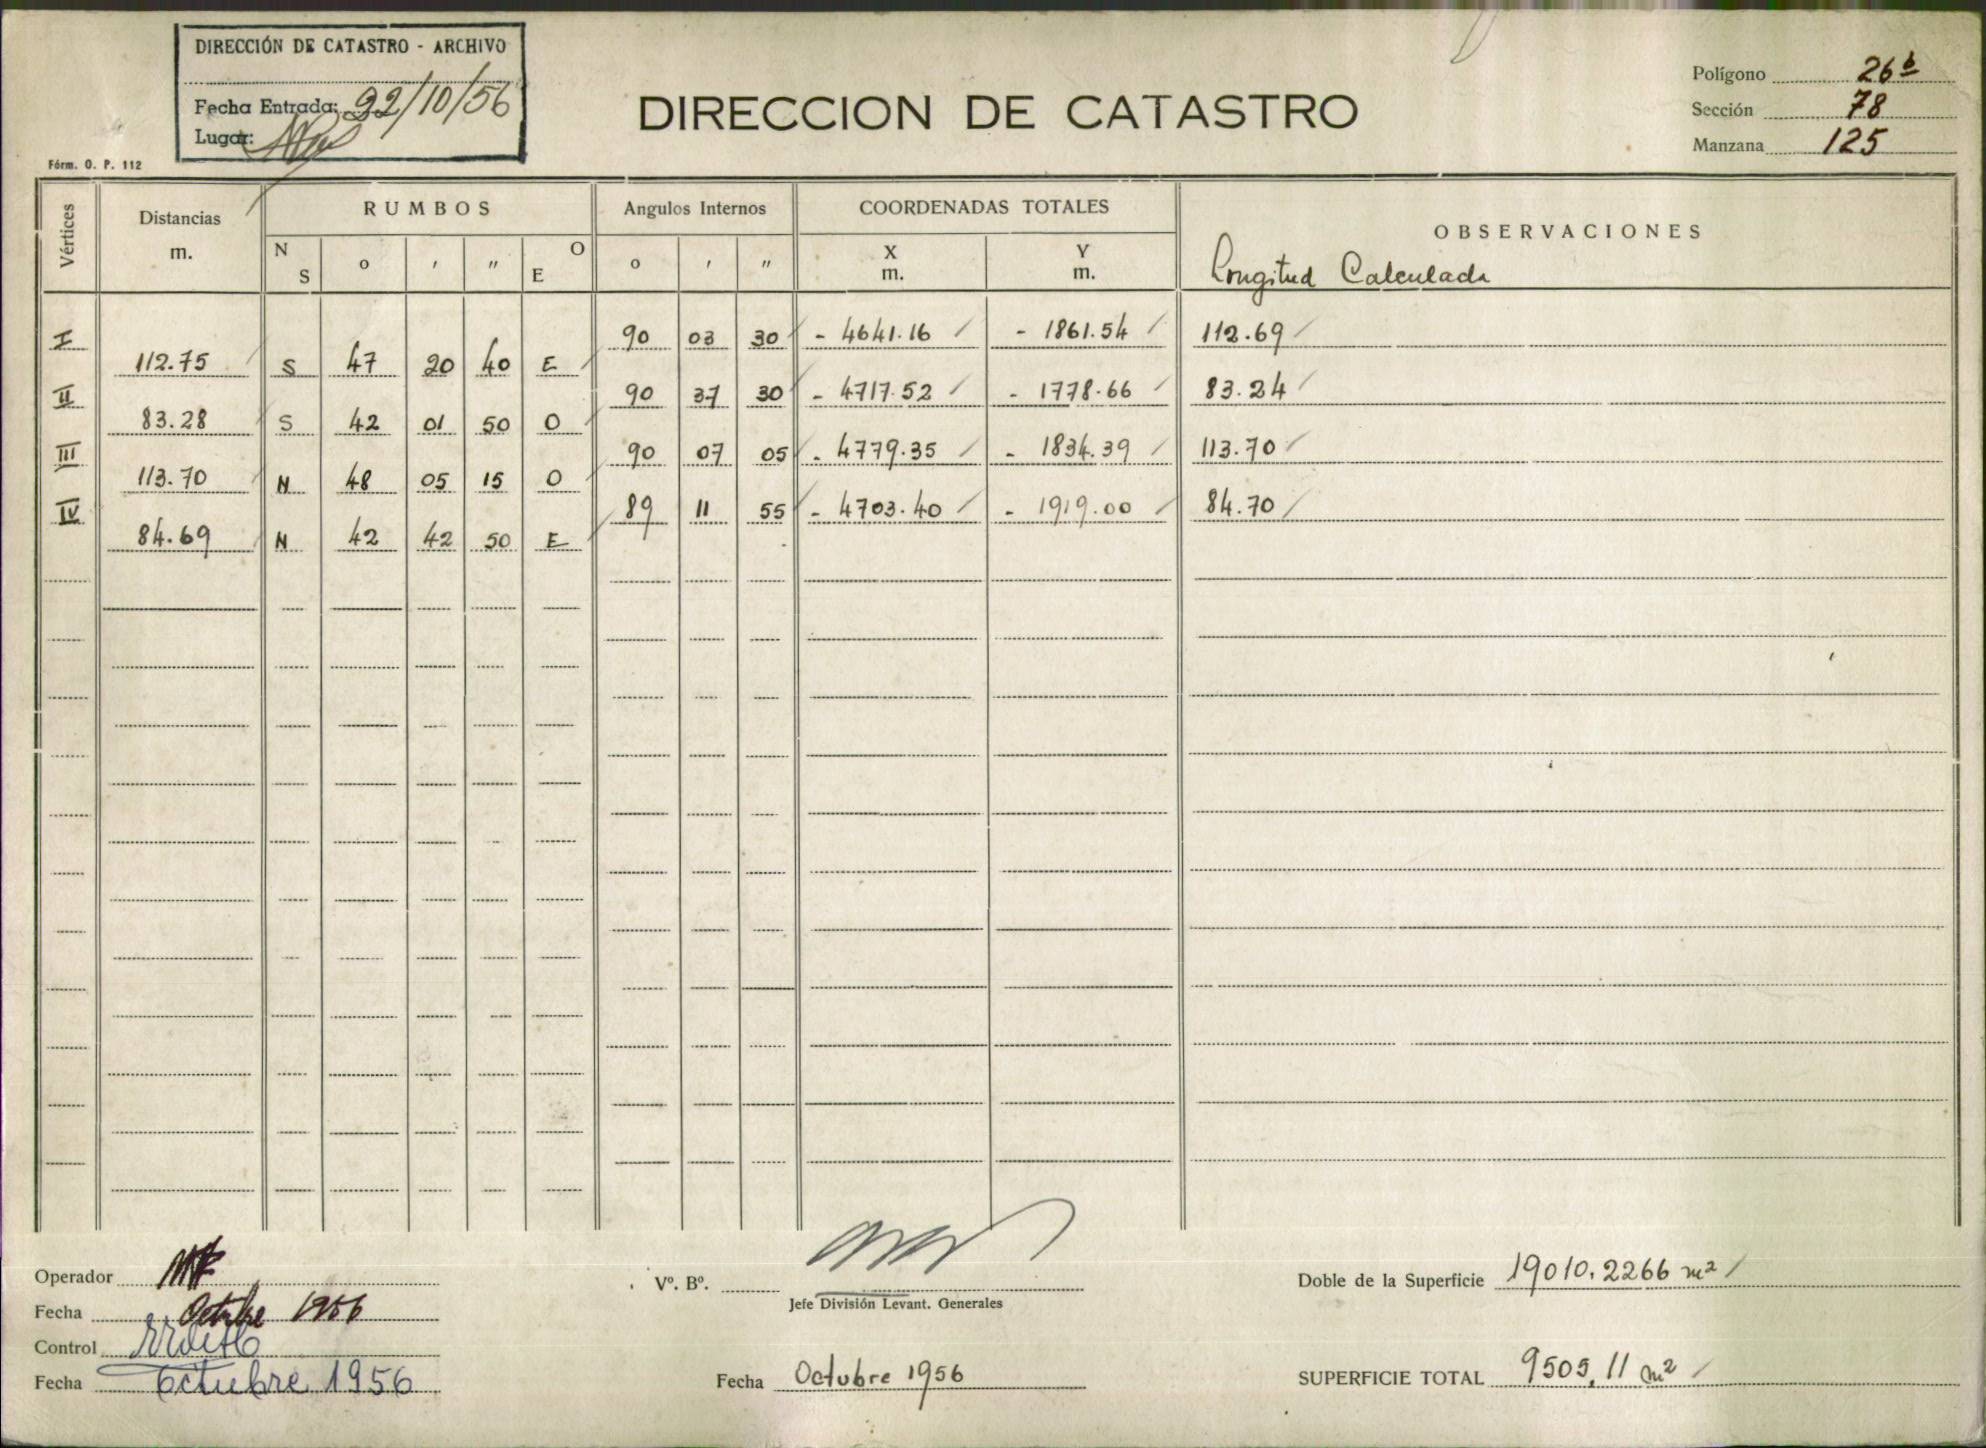 DIRECCIÓN DE CATASTRO - ARCHIVO
Fecha Entrada: 22/10/56
Lugar:
Fórm. O. P. 112
DIRECCION DE CATASTRO
Polígono 26 b
Sección 78
Manzana 125
Vértices Distancias m. RUMBOS Angulos Internos COORDENADAS TOTALES OBSERVACIONES
N S o ' " O E o ' " X m. Y m. Longitud Calculada
I 90 03 30 - 4641.16 - 1861.54 112.69
112.75 S 47 20 40 E
II 90 37 30 - 4717.52 - 1778.66 83.24
83.28 S 42 01 50 O
III 90 07 05 - 4779.35 - 1834.39 113.70
113.70 N 48 05 15 O
IV 89 11 55 - 4703.40 - 1919.00 84.70
84.69 N 42 42 50 E
Operador
Fecha Octubre 1956
Control
Fecha Octubre 1956
Vº. Bº.
Jefe División Levant. Generales
Fecha Octubre 1956
Doble de la Superficie 19010.2266 m²
SUPERFICIE TOTAL 9505,11 m²